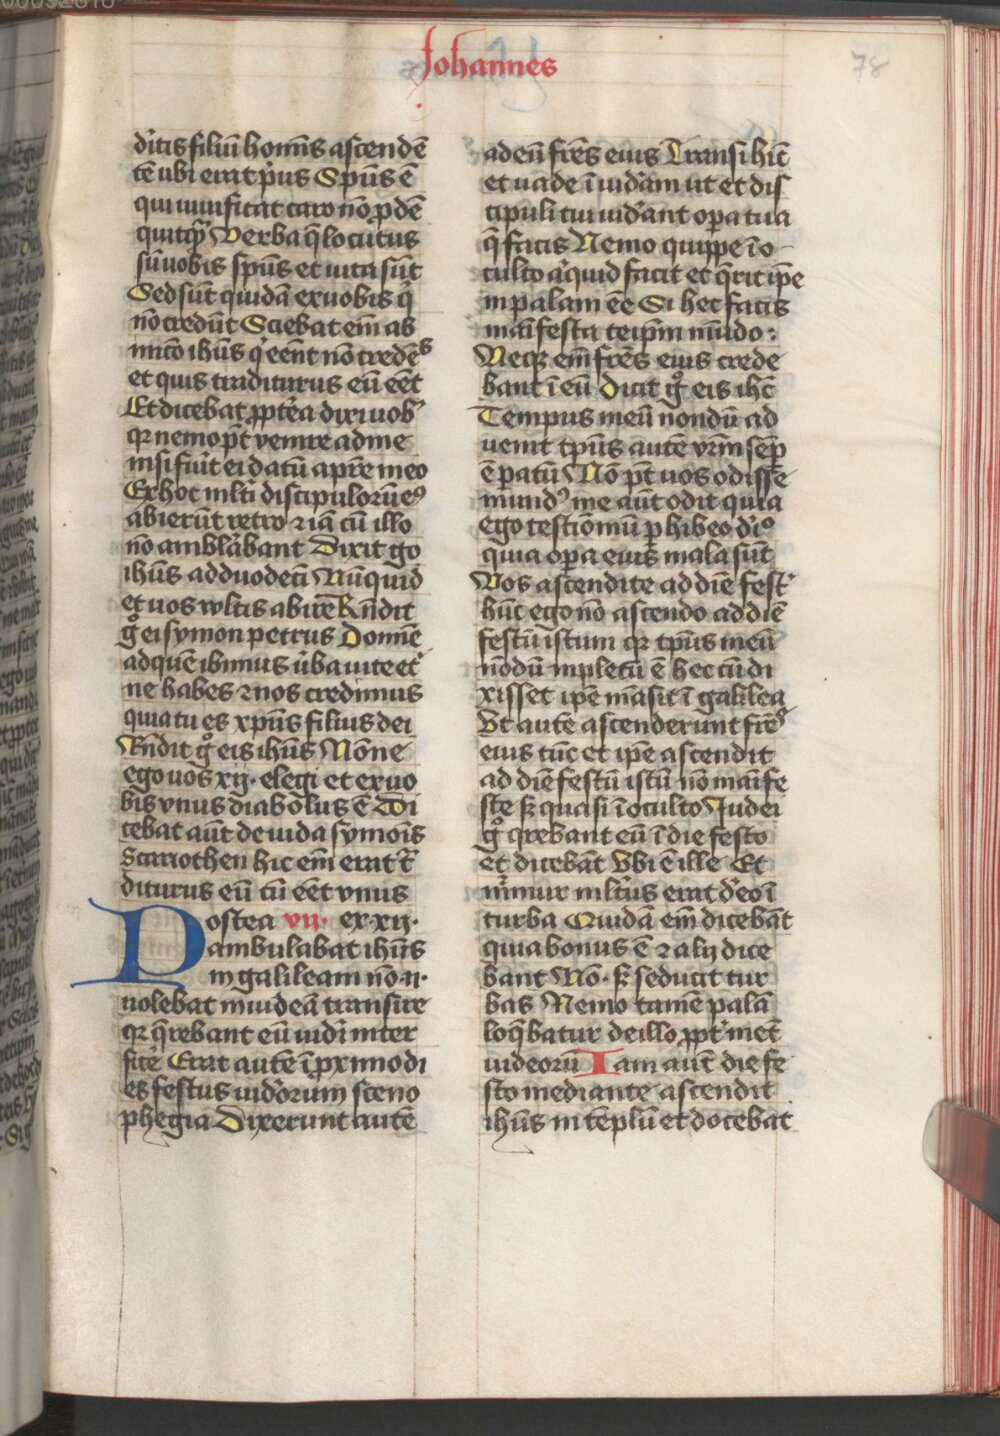 Johannes
78
ditis filiu᷎ homīs ascendē
tē ubi erat pͥus Spūs ē
qui uiuificat caro nō ꝓdē
quitqͣ Verba q̄ locutus
sū uobis spūs et uita sūt
Sed sūt quidā ex uobis qͥ
nō credūt Sciebat em̄ ab
inico ihūs qͥ eēnt nō credēs
et quis traditurus eū eēt
Et dicebat ꝓpt̄ea dixi uobꝭ
qꝛ nemo pt̄ venire ad me
nisi fuīt ei datū a pr̄e meo
Ex hoc ml̄ti discipulorū eꝰ
abierūt retro ⁊ iā cū illo
nō amblābant Dixit go
ihūs ad duodeci Nūquid
et uos wltis abire Rn̄dit
gͦ ei symon petrus Domīe
ad quē ibimus ūba uite et̾
ne habes ⁊ nos credimus
quia tu es xpūs filius dei
Rn̄dit gͦ eis ihūs Nōne
ego uos xij. elegi et ex uo
bis vnus diabolus ē Di
cebat aūt de iuda symōis
Scariothen hic em̄ erat tͣ
diturus eū cū eēt vnus
Postea vij. ex xij.
ambulabat ihūs
in galileam nō .n.
uolebat in iudeā transire
qꝛ q̄rebant eū iudi̾ inter
fic̾e Erat autē ī ꝓximo di
es festus iud̾orum sceno
phegia Dixerunt autē
ad eū fr̄es eius Transi hīc
et uade ī iud̾am ut et dis
cipuli tui uid̾ant oꝑa tua
q̄ facis Nemo quippe ī o
culto aͥquid facit et q̄rit ip̄e
in palam eē Si hec facis
maīfesta teip̄m mūdo :
Neqꝫ em̄ fr̄es eius crede
bant ī eū Dicit gͦ eis ihc̄
Tempus meū nondū ad
uenit tp̄us autē vr̄m semꝑ
ē patū Nō pt̄ uos odisse
mundꝰ me aūt odit quia
ego testiōmū ꝑhibeo d̾ iͦ
quia oꝑa eius mala sūt
Vos ascendite ad diē fest̾
hūc ego nō ascendo ad diē
festū istum qꝛ tp̄us meū
nōdū inpletū ē hec cū di
xisset ip̄e māsit ī galilea
Vt autē ascenderunt fr̄es
eius tūc et ip̄e ascendit
ad diē festū istū nō maīfe
ste sꝫ quasi ī oculto Judei
gͦ qrebant eū ī die festo
et dicebāt Vbi ē ille Et
mͬmur ml̄tus erat d̾ eo ī
turba Quidā em̄ dicebāt
quia bonus ē ⁊ alij dice
bant Nō . sꝫ seducit tur
bas Nemo tamē palā
loq̄batur de illo ꝓpt̾ met̄
iudeorū Iam aūt die fe
sto mediante ascendit
ihūs in templū et docebat